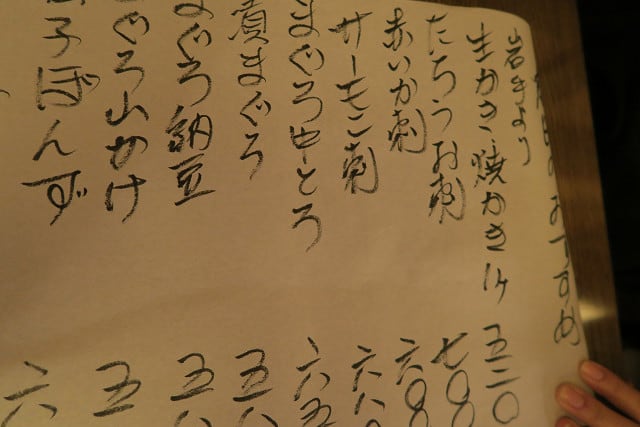 本日のおすすめ
岩手より
生かき・焼かき 1ケ 五二〇
たちうお刺 七〇〇
赤いか刺 六〇〇
サーモン刺 六八〇
まぐろ中とろ 六五
漬まぐろ 五八
まぐろ納豆 五八
ぐろ山かけ 五
子ぽんず 六八